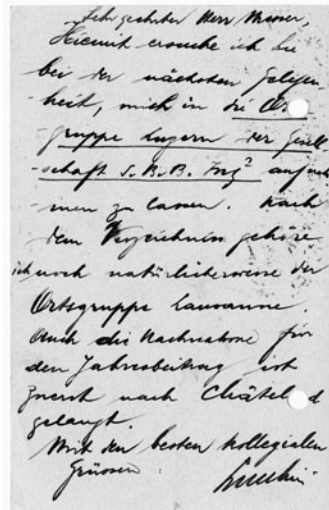 Sehr geehrter Herr
Hiemit ersuche ich Sie
bei der nächsten Gelegen-
heit, mich in die Orts
-gruppe Luzern der Gesell
-schaft S.B.B. Ing? aufneh
-men zu lassen. Nach
dem Verzeichnis gehöre
ich noch natürlicherweise der
Ortsgruppe Lausanne.
Auch die Nachnahme für
den Jahresbeitrag ist
zuerst nach
gelangt.
Mit den besten kollegialen
Grüssen